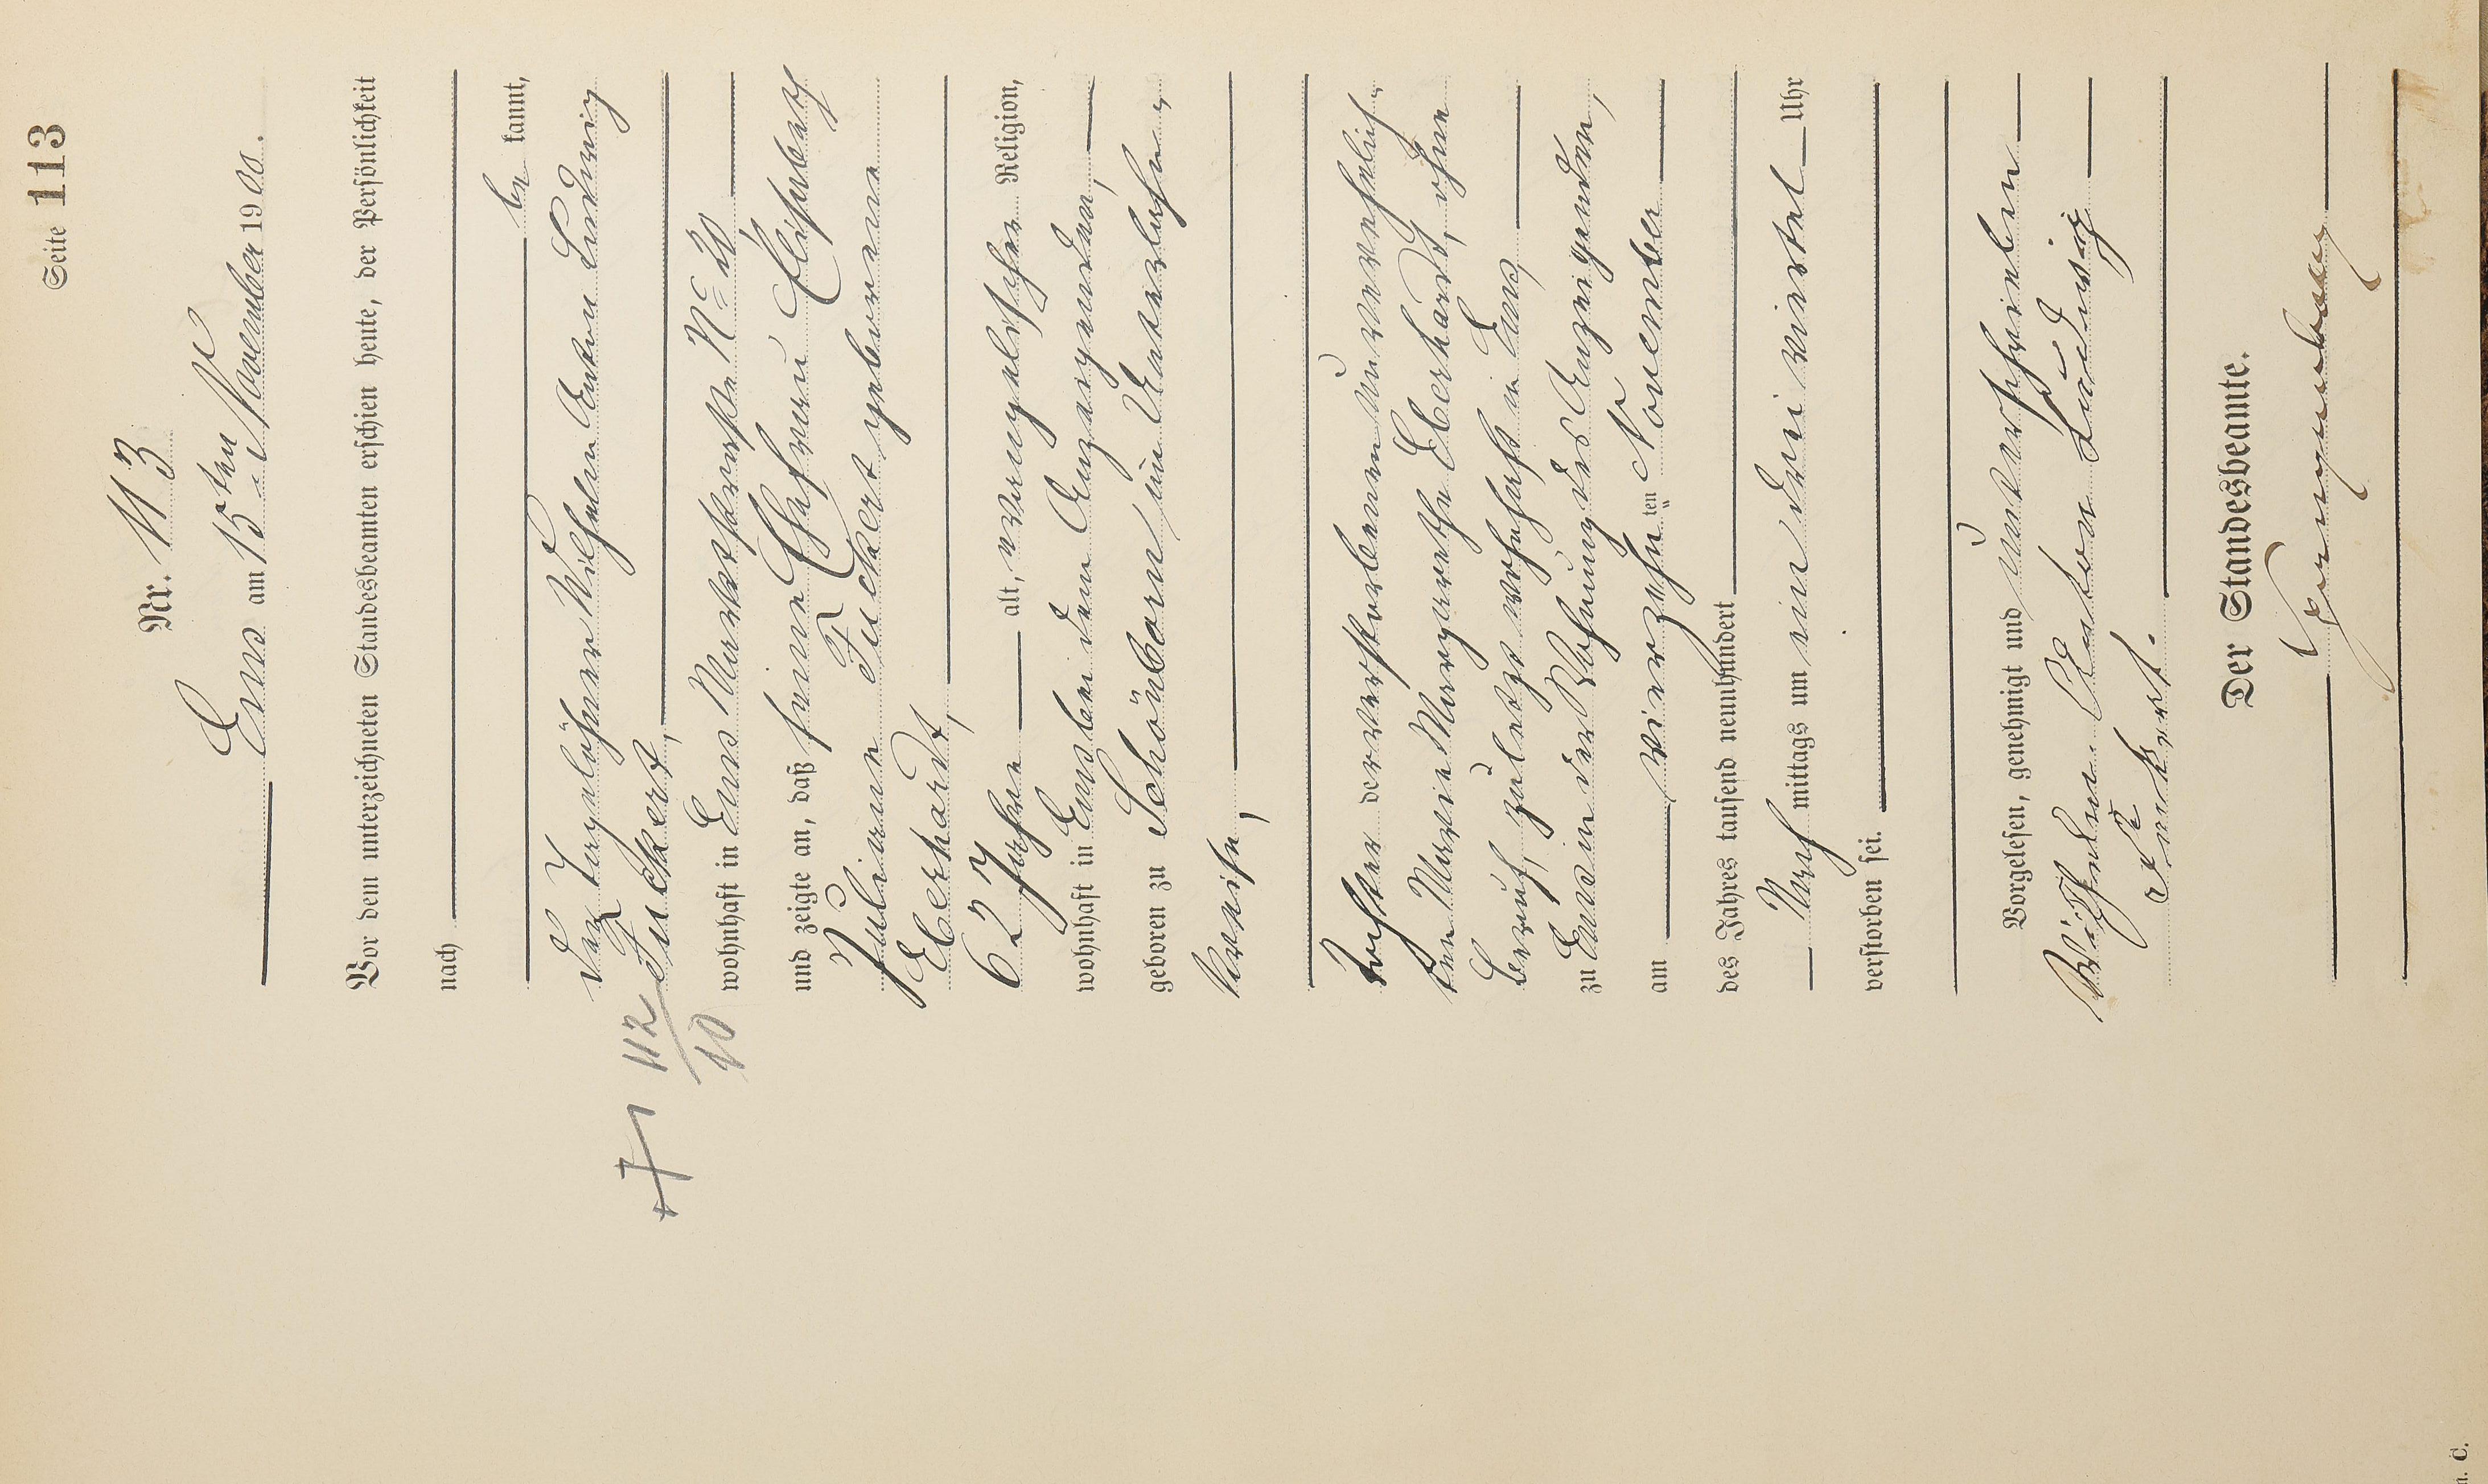 Seite 113
Nr. 113
Ems am 15ten November 1900.
Vor dem unterzeichneten Standesbeamten erschien heute, der Persönlichkeit
nach
be kannt,
der Tagelöhner Wilhelm Anton Ludwig
Fuckert,
wohnhaft in Ems Marktstraße No 20
und zeigte an, daß seine Ehefrau Elisabeth
Juliane Fuckert geborene
Eberhardt,
62 Jahre alt, evangelischer Religion,
wohnhaft in Ems bei dem Anzeigenden,
geboren zu Schönborn im Unterlahn-
kreise,
Tochter der verstorbenen unverehelich-
ten Marie Margarethe Eberhardt, ohne
Beruf, zuletzt wohnhaft in Ems,
zu Ems in der Wohnung des Anzeigenden,
am vierzehnten November
des Jahres tausend neunhundert
Nach mittags um ein drei viertel Uhr
verstorben sei.
Vorgelesen, genehmigt und unterschrieben
Wilhelm Anton Ludwig
Fuckert.
Der Standesbeamte.
112
10
C.